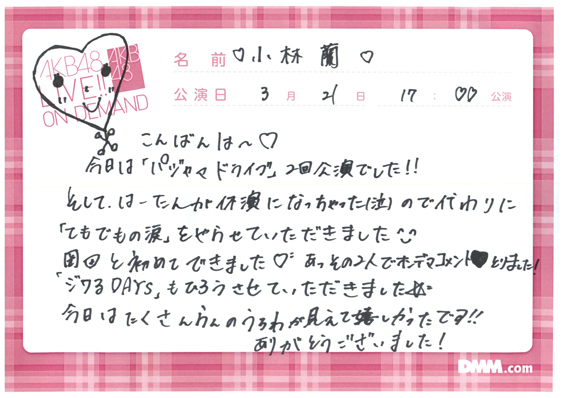 AKB48
LIVE!!
ON DEMAND
AKB
48
名 前 ♡小林 蘭 ♡
公演日 3 月 21 日 17 : ♡♡ 公演
こんばんは〜♡
今日は「パジャマドライブ」2回公演でした!!
そして、はーたんが休演になっちゃった(泣)ので代わりに
「てもでもの涙」をやらせていただきました
岡田と初めてできました♡ あっその2人でホンデマコメント♥とりました!
「ジワるDAYS」もひろうさせていただきました
今日はたくさんらんのうちわが見えて嬉しかったです!!
ありがとうございました!
DMM.com